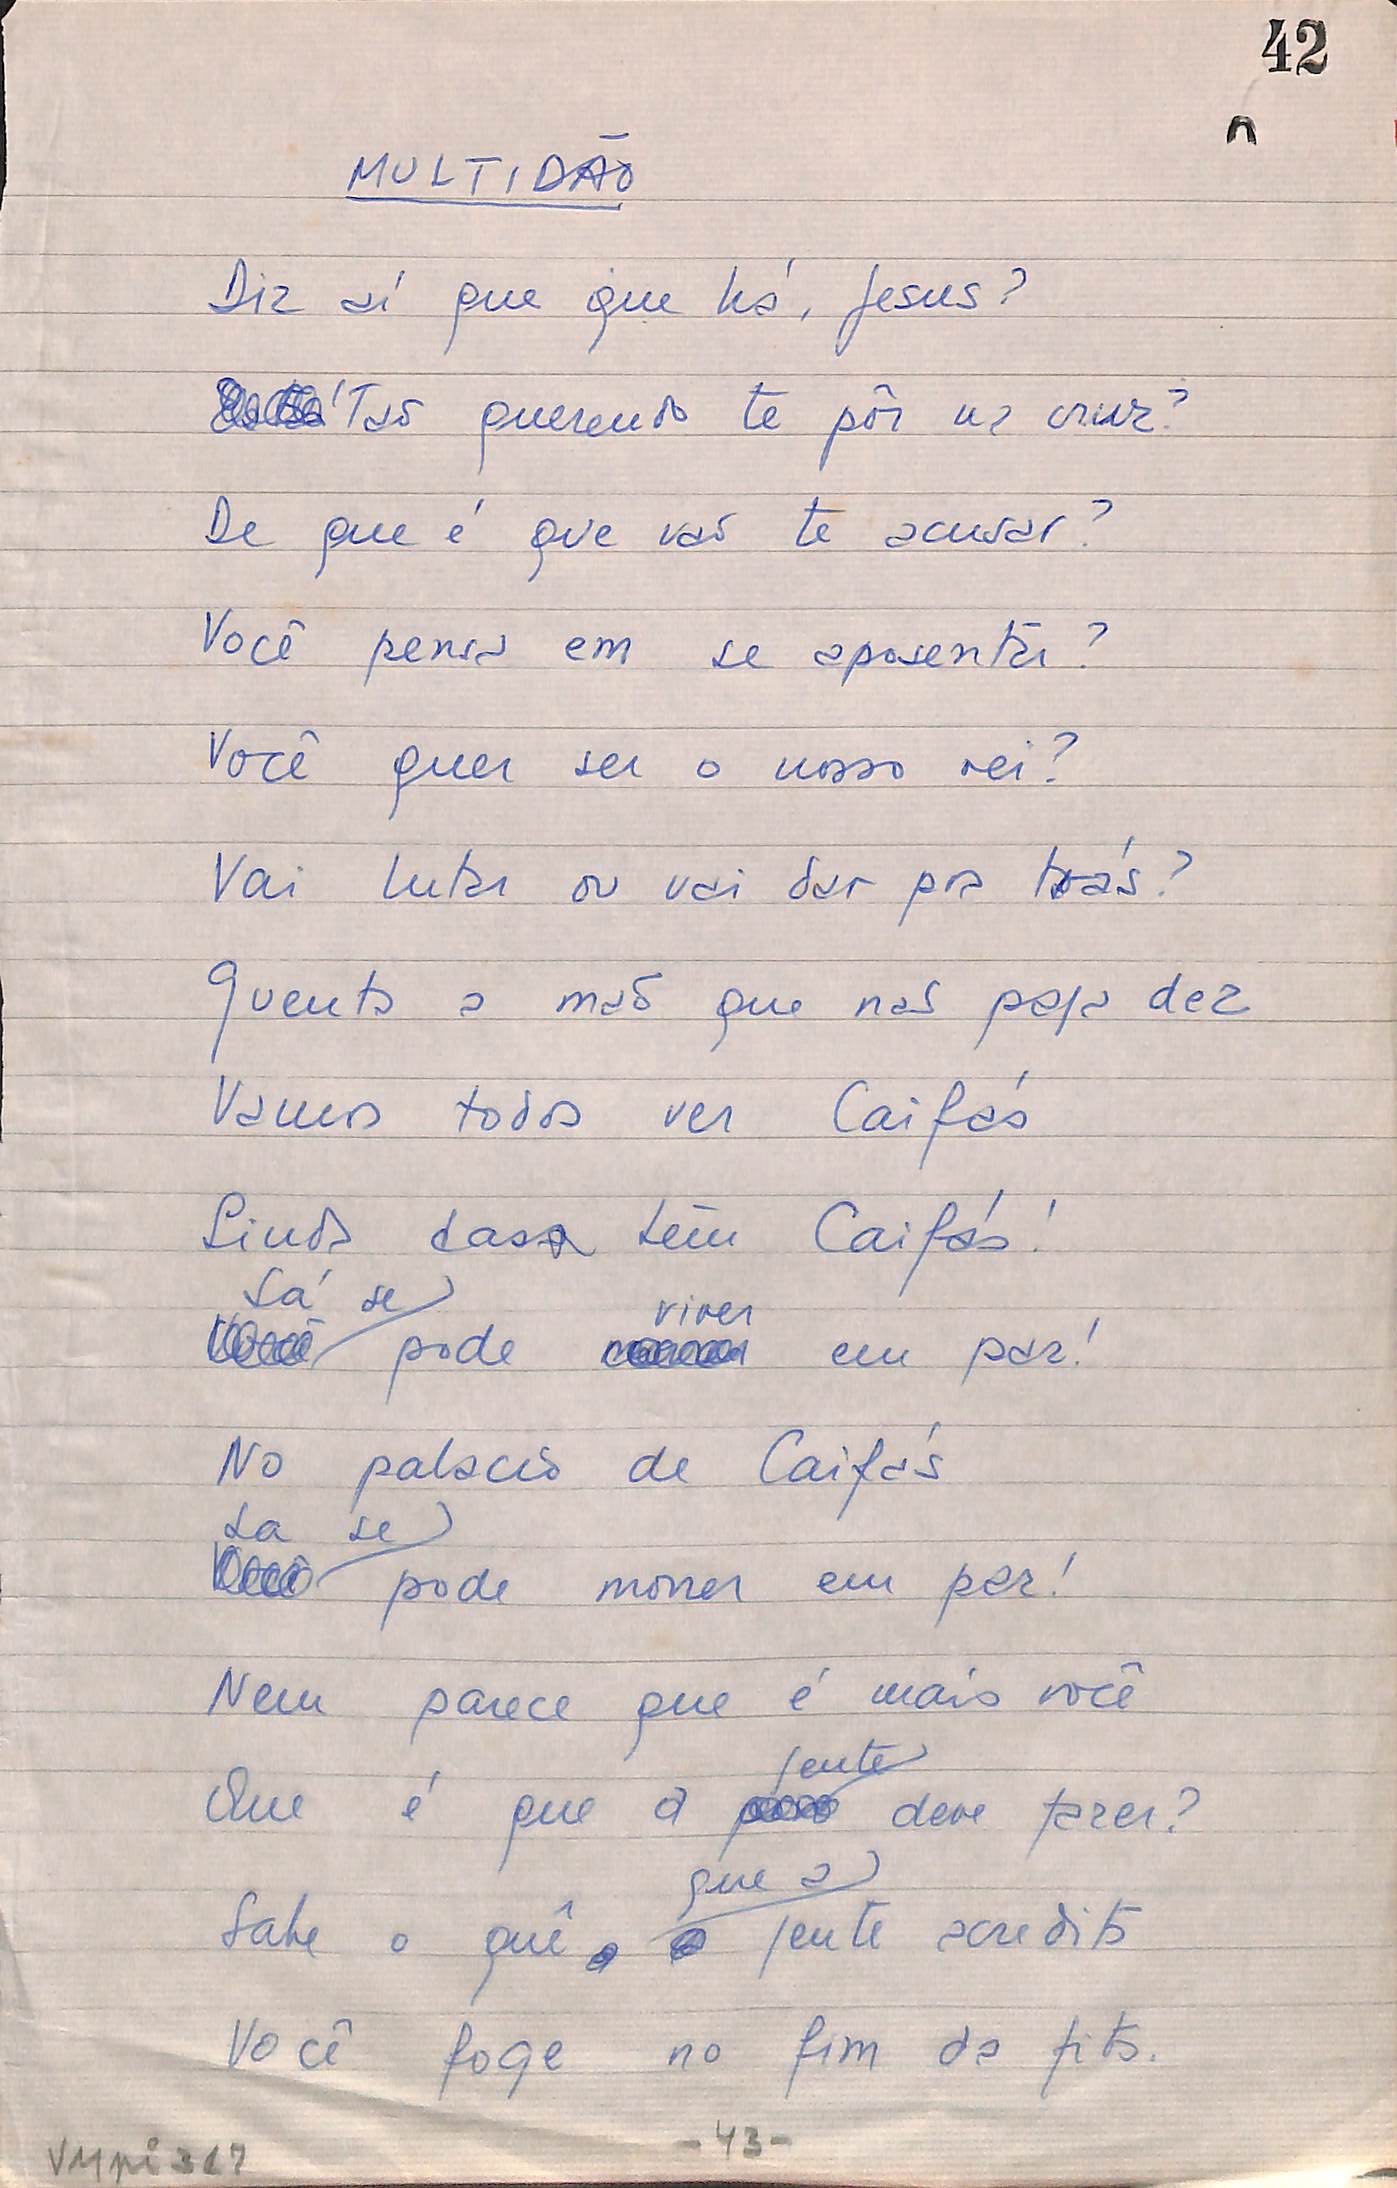 42
MULTIDÃO
Diz aí que que há, Jesus?
Tão querendo te pôr na cruz?
De que é que vão te acusar?
Você pensa em se aposentar?
Você quer ser o nosso rei?
Vai lutar ou vai dar pra trás?
Quento a mão que nas pega dez
Vamos todos ver Caifás
Linda casa têm Caifás!
Lá se pode viver em paz!
No palacio de Caifás
La se pode morrer em paz!
Nem parece que é mais você
Que é que a gente deve fazer?
Sabe o quê que a gente acredita
Você foge no fim da fita.
-43-
VMpi 317